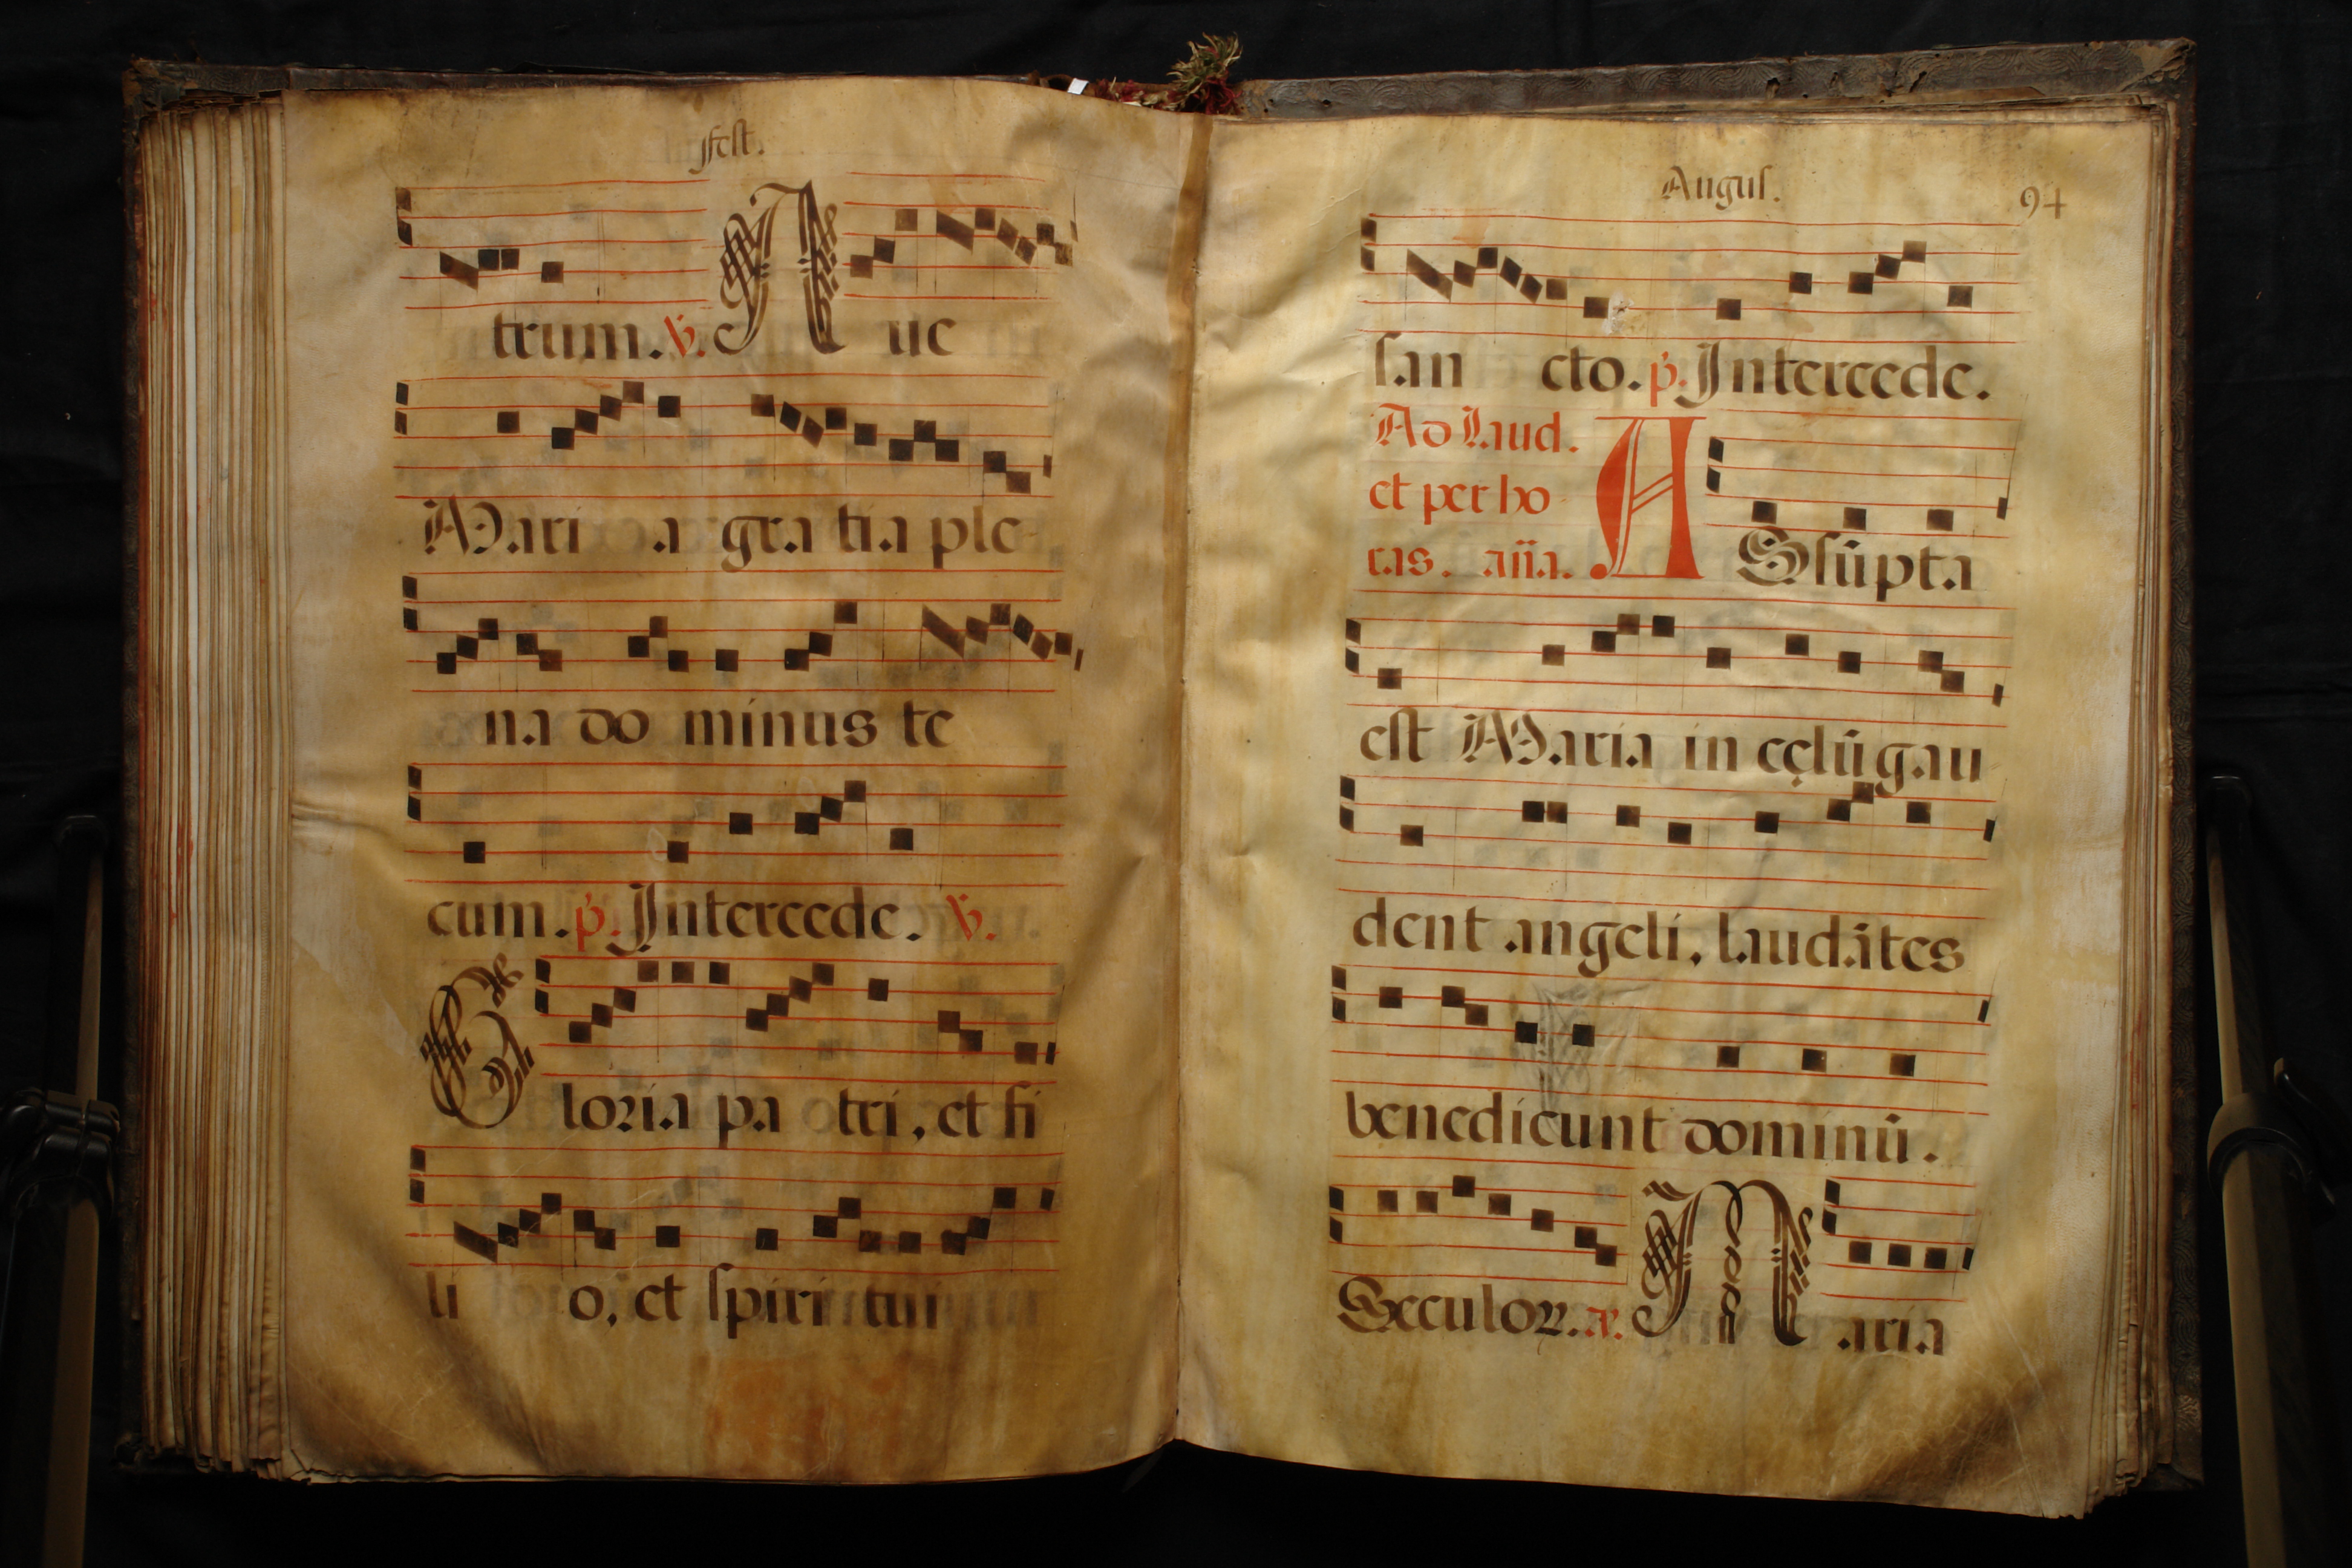 Fest.
trum. ℣. A ue
Mari a gra tia ple-
na do minus te
cum. p̸. Intercede. ℣.
G loria pa tri, et fi
li o, et spiri tui
Augus. 94
san cto. p̸. Intercede.
Ad Laud.
et per ho
ras. aña.
A Ssūpta
est Maria in cęlū gau
dent angeli, laudātes
benedicunt dominū.
Seculoꝝ. a℣. M aria